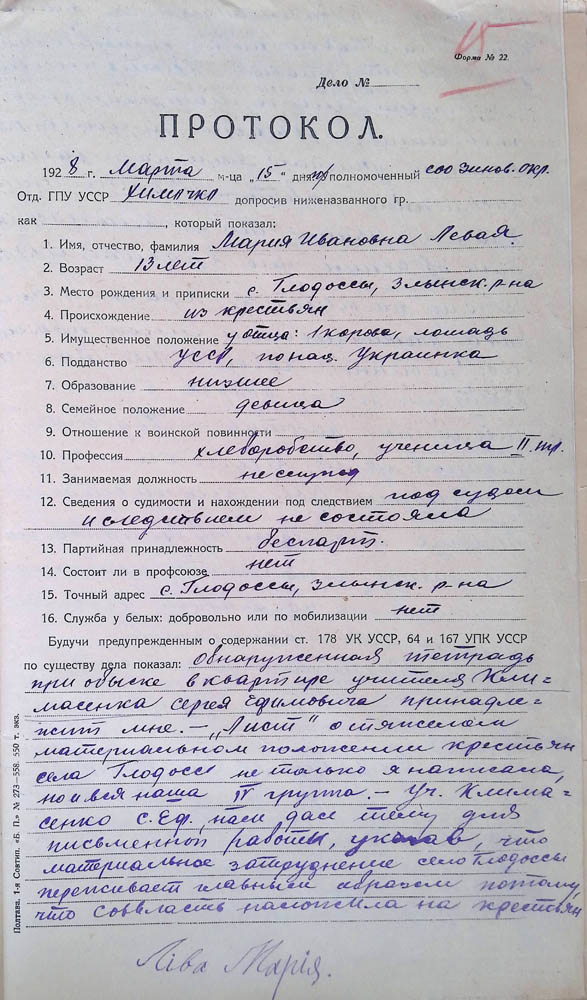 15
Форма № 22.
Дело №
ПРОТОКОЛ.
1928 г. Марта м-ца „15" дня, уполномоченный СОО Зинов. Окр.
Отд. ГПУ УССР Химочка допросив ниженазванного гр.
как , который показал:
1. Имя, отчество, фамилия Мария Ивановна Левая.
2. Возраст 13 лет
3. Место рождения и приписки с. Глодоссы, Злынск. р-на
4. Происхождение из крестьян
5. Имущественное положение у отца: 1 корова, лошадь
6. Подданство УССР, по нац. Украинка
7. Образование низшее
8. Семейное положение девица
9. Отношение к воинской повинности
10. Профессия хлеборобство, ученица II
11. Занимаемая должность
12. Сведения о судимости и нахождении под следствием под судом
и следствием не состояла
13. Партийная принадлежность беспарт.
14. Состоит ли в профсоюзе нет
15. Точный адрес с. Глодоссы, Злынск. р-на
16. Служба у белых: добровольно или по мобилизации нет
Будучи предупрежденным о содержании ст. 178 УК УССР, 64 и 167 УПК УССР
по существу дела показал: Обнаруженная тетрадь
при обыске в квартире учителя Кли-
масенка Сергея Ефимовича принадле-
жит мне. – „Лист" о тяжелом
материальном положении крестьян
села Глодоссы не только я написала,
но и вся наша группа. – Уч. Клима-
сенко С. Еф. нам дал тему для
письменной работы, указав, что
материальное затруднение село Глодоссы
переживает главным образом потому,
что соввласть наложила на крестьян
Ліва Марія.
Полтава. 1-я Совтип. «Б. П.» № 273—558. 550 т. экз.